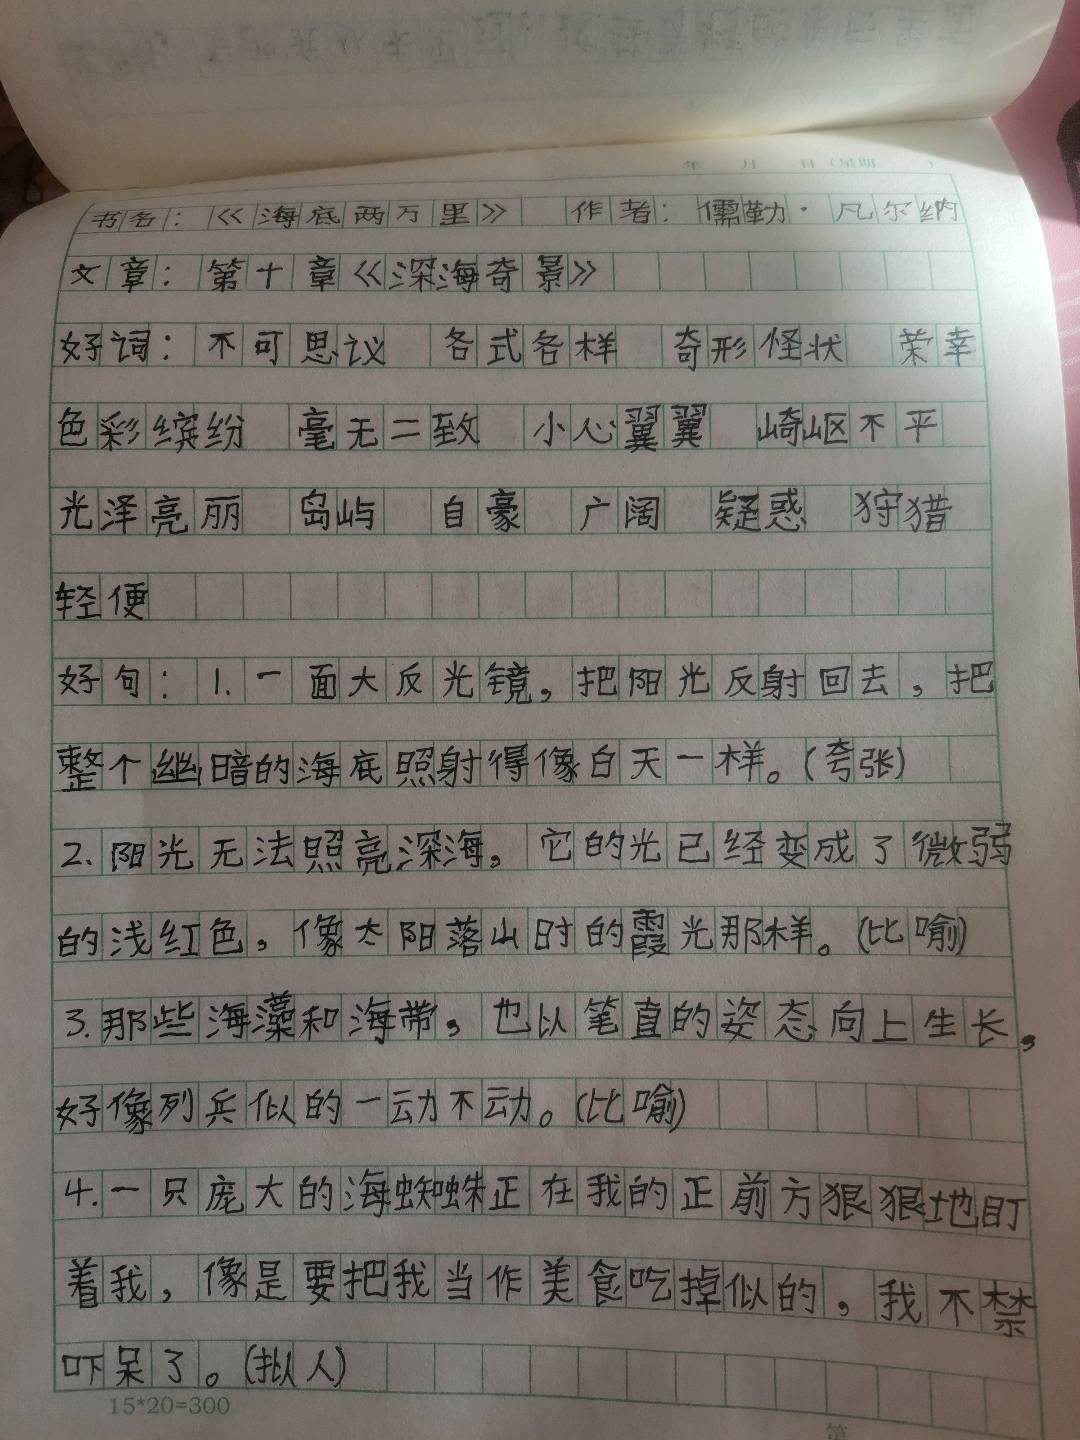 年 月 日（星期 ）
书名：《海底两万里》 作者：儒勒·凡尔纳
文章：第十章《深海奇景》
好词：不可思议 各式各样 奇形怪状 荣幸
色彩缤纷 毫无二致 小心翼翼 崎岖不平
光泽亮丽 岛屿 自豪 广阔 疑惑 狩猎
轻便
好句：1.一面大反光镜，把阳光反射回去，把
整个幽暗的海底照射得像白天一样。(夸张)
2.阳光无法照亮深海。它的光已经变成了微弱
的浅红色，像太阳落山时的霞光那样。(比喻)
3.那些海藻和海带，也以笔直的姿态向上生长，
好像列兵似的一动不动。(比喻)
4.一只庞大的海蜘蛛正在我的正前方狠狠地盯
着我，像是要把我当作美食吃掉似的，我不禁
吓呆了。(拟人)
15*20=300
第